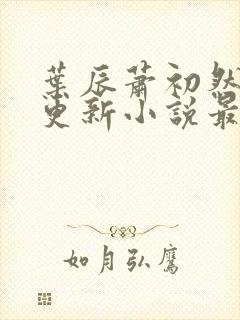 葉辰蕭初然
更新小說最
如月弘鷹